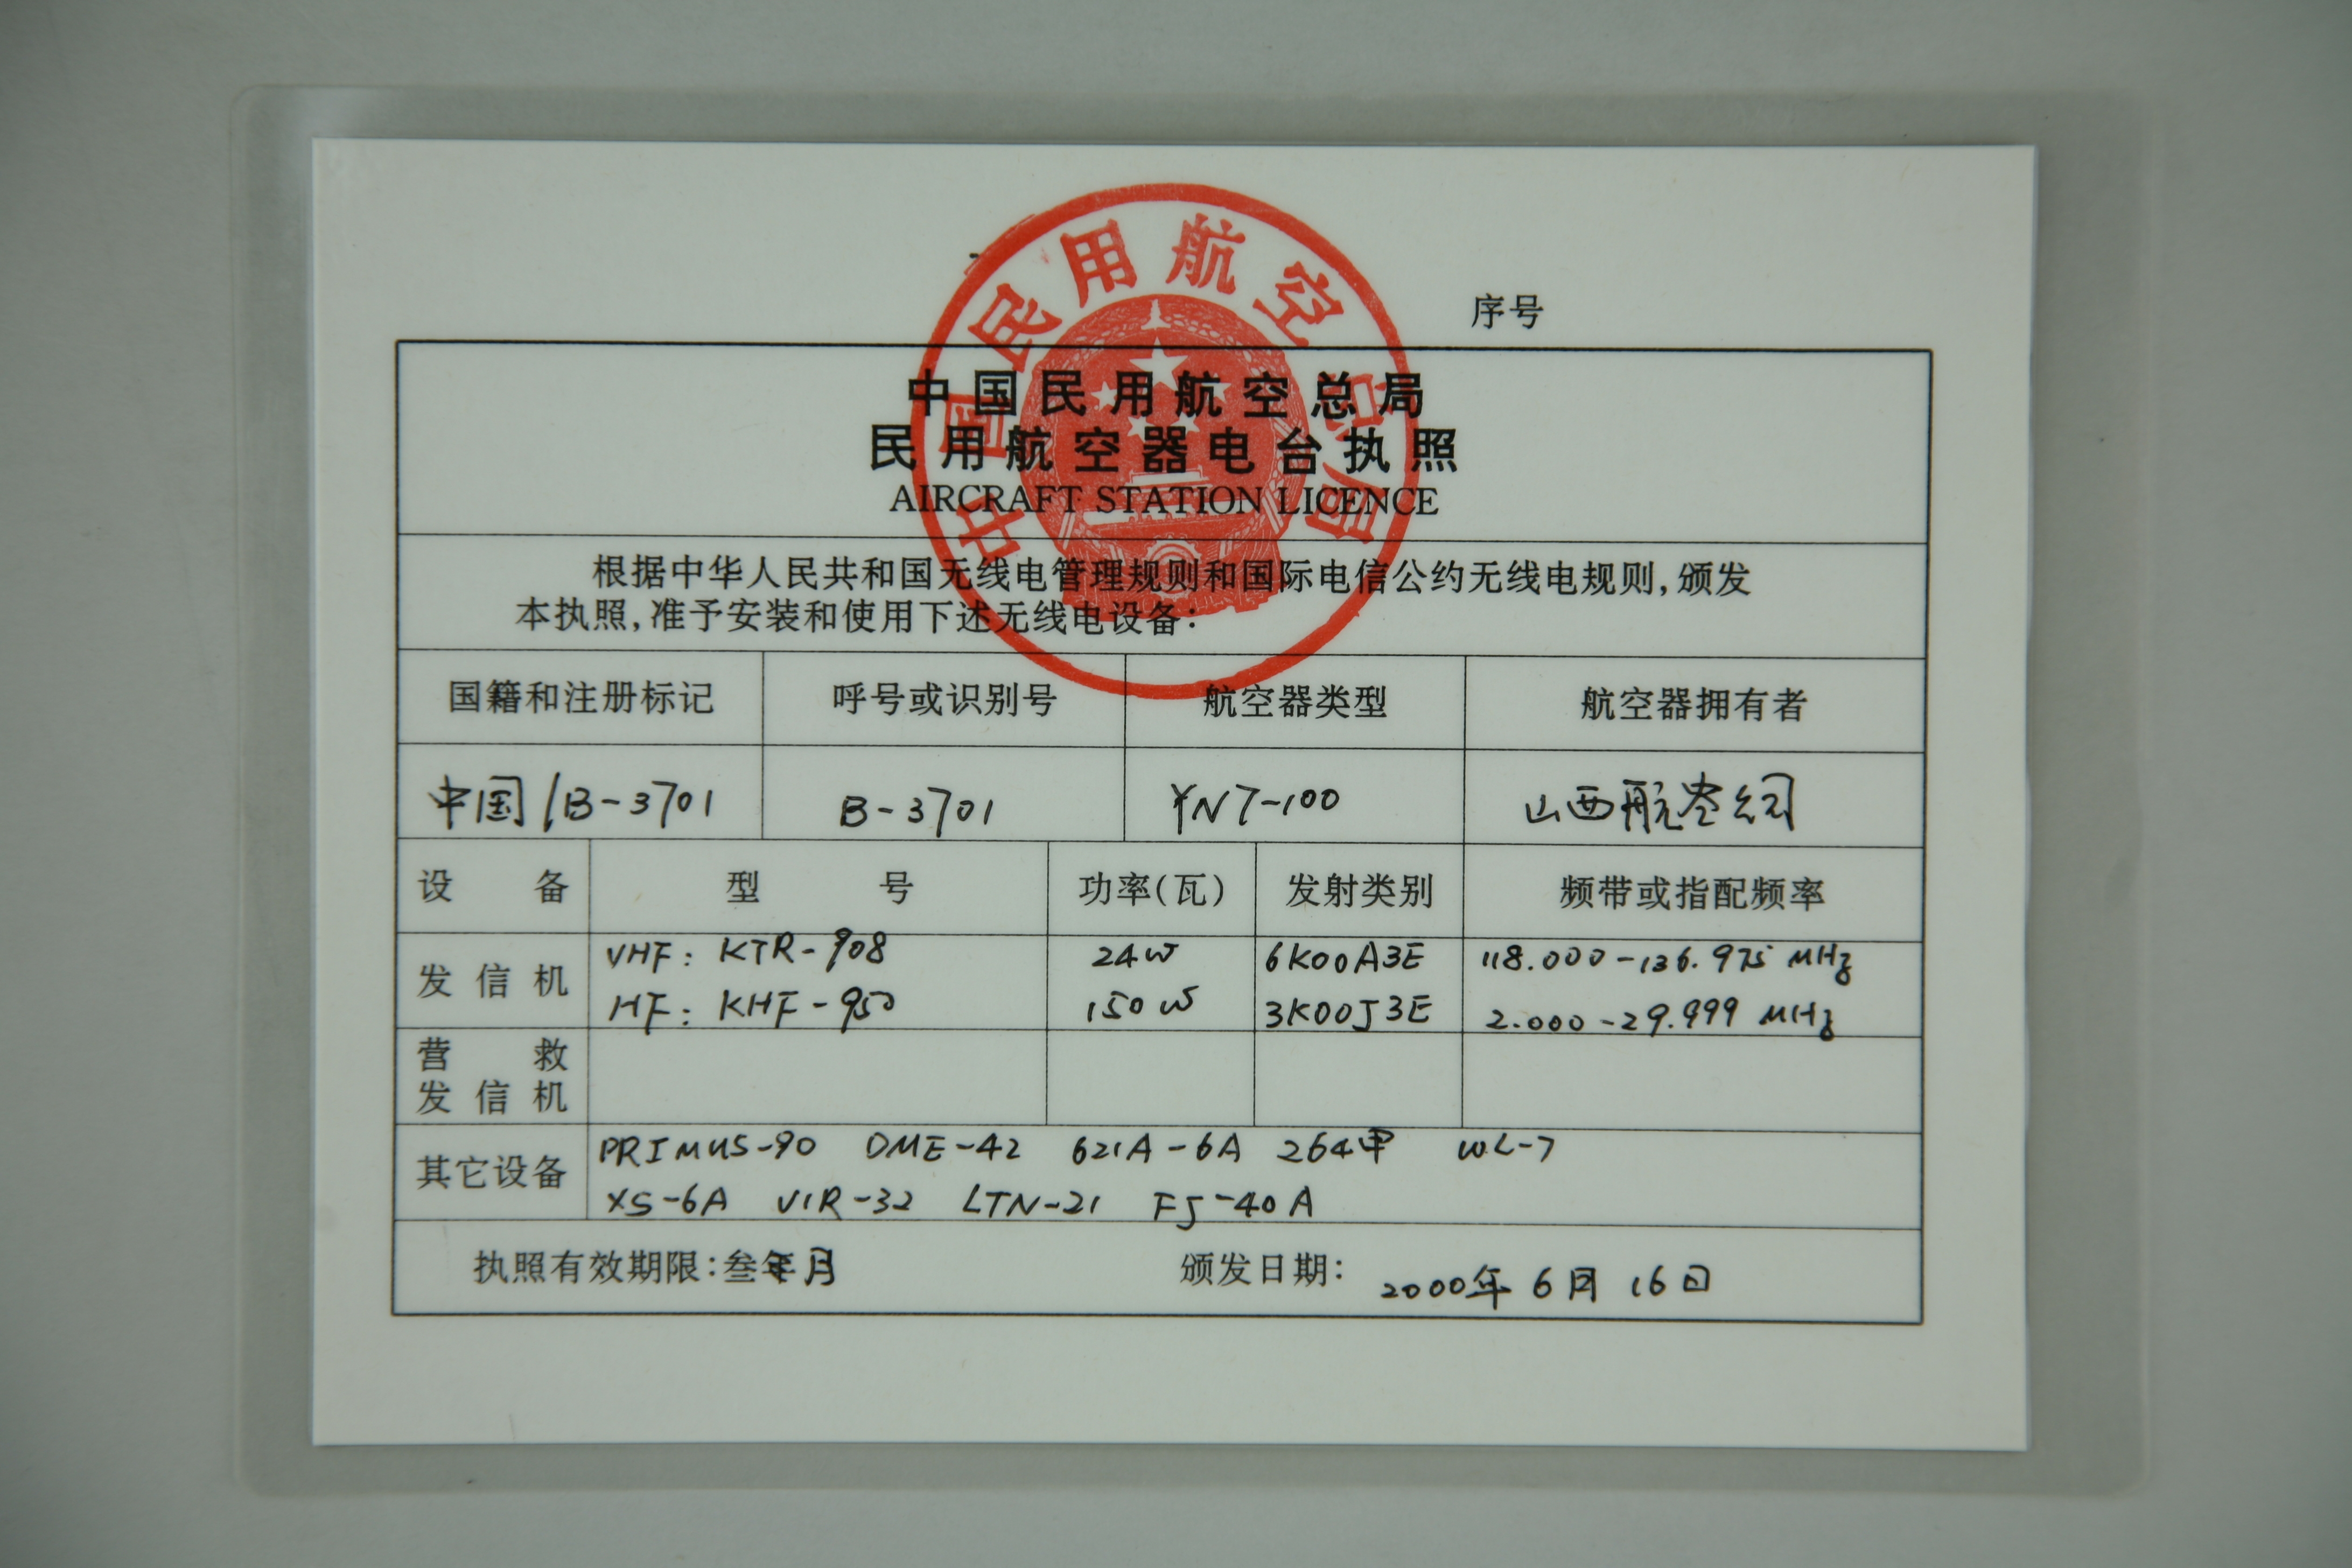 中国民用航空总局
序号
中国民用航空总局
民用航空器电台执照
AIRCRAFT STATION LICENCE
根据中华人民共和国无线电管理规则和国际电信公约无线电规则,颁发
本执照,准予安装和使用下述无线电设备:
国籍和注册标记 呼号或识别号 航空器类型 航空器拥有者
中国/B-3701 B-3701 YN7-100 山西航空公司
设备 型号 功率(瓦) 发射类别 频带或指配频率
发信机 VHF: KTR-908 24W 6K00A3E 118.000-136.975 MHz
HF: KHF-950 150W 3K00J3E 2.000-29.999 MHz
营救
发信机
其它设备 PRIMUS-90 DME-42 621A-6A 264甲 WL-7
XS-6A VIR-32 LTN-21 FJ-40A
执照有效期限:叁年月 颁发日期: 2000年6月16日